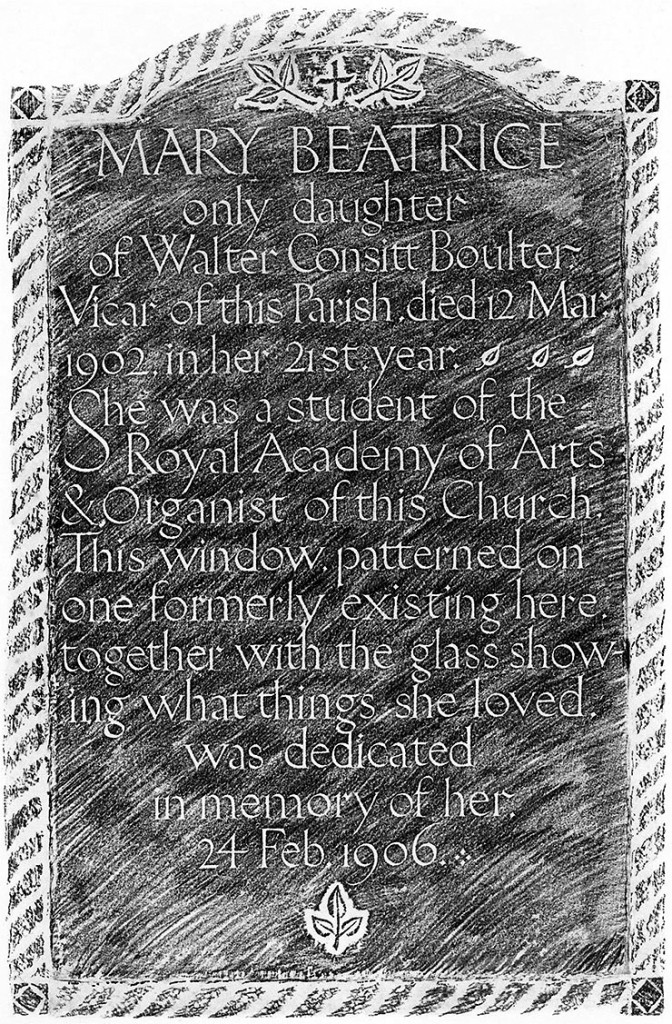 MARY BEATRICE
only daughter
of Walter Consitt Boulter:
Vicar of this Parish, died 12 Mar:
1902, in her 21st. year.
She was a student of the
Royal Academy of Arts
& Organist of this Church.
This window, patterned on
one formerly existing here,
together with the glass show-
ing what things she loved,
was dedicated
in memory of her.
24 Feb. 1906.